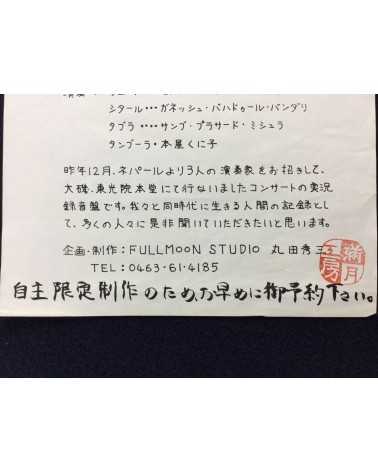 シタール・・・ガネッシュ・バハドゥール・バンダリ
タブラ・・・・サンブ・プラサード・ミシュラ
タンブーラ・本屋くに子
昨年12月、ネパールより3人の演奏家をお招きして、
大磯、東光院本堂にて行ないましたコンサートの実況
録音盤です。我々と同時代に生きる人間の記録とし
て、多くの人々に是非聞いていただきたいと思います。
企画・制作：FULLMOON STUDIO 丸田秀三
TEL：0463・61・4185
満月工房
自主限定制作のため、お早めに御予約下さい。